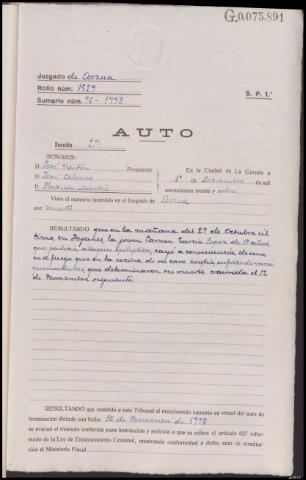 G.0.075.891
Juzgado de Arzua
Rollo núm. 1529
Sumario núm. 96-1938
S. P. 1.ª
AUTO
Sección 2ª
SEÑORES:
D. José Presidente
D. José Alonso
D. Patricio Martín
En la Ciudad de La Coruña a
1º Diciembre de mil
novecientos treinta y ocho
Visto el sumario instruído en el Juzgado de Arzua
por muerte
RESULTANDO que en la mañana del 29 de Octubre úl
timo, en Popanes, la joven Carmen García Lopez de 17 años,
que padecía ataques epilépticos, cayó a consecuencia de uno
en el fuego que en la cocina de su casa existía sufriendo varias
quemaduras que determinaron su muerte ocurrida el 12
de Noviembre siguiente
RESULTANDO que remitido a este Tribunal el mencionado sumario en virtud del auto de
terminación dictado con fecha 16 de Noviembre de 1938
se evacuó el traslado conferido para instrucción y petición a que se refiere el artículo 627 refor-
mado de la Ley de Enjuiciamiento Criminal, mostrando conformidad a dicho auto de termina-
ción el Ministerio Fiscal